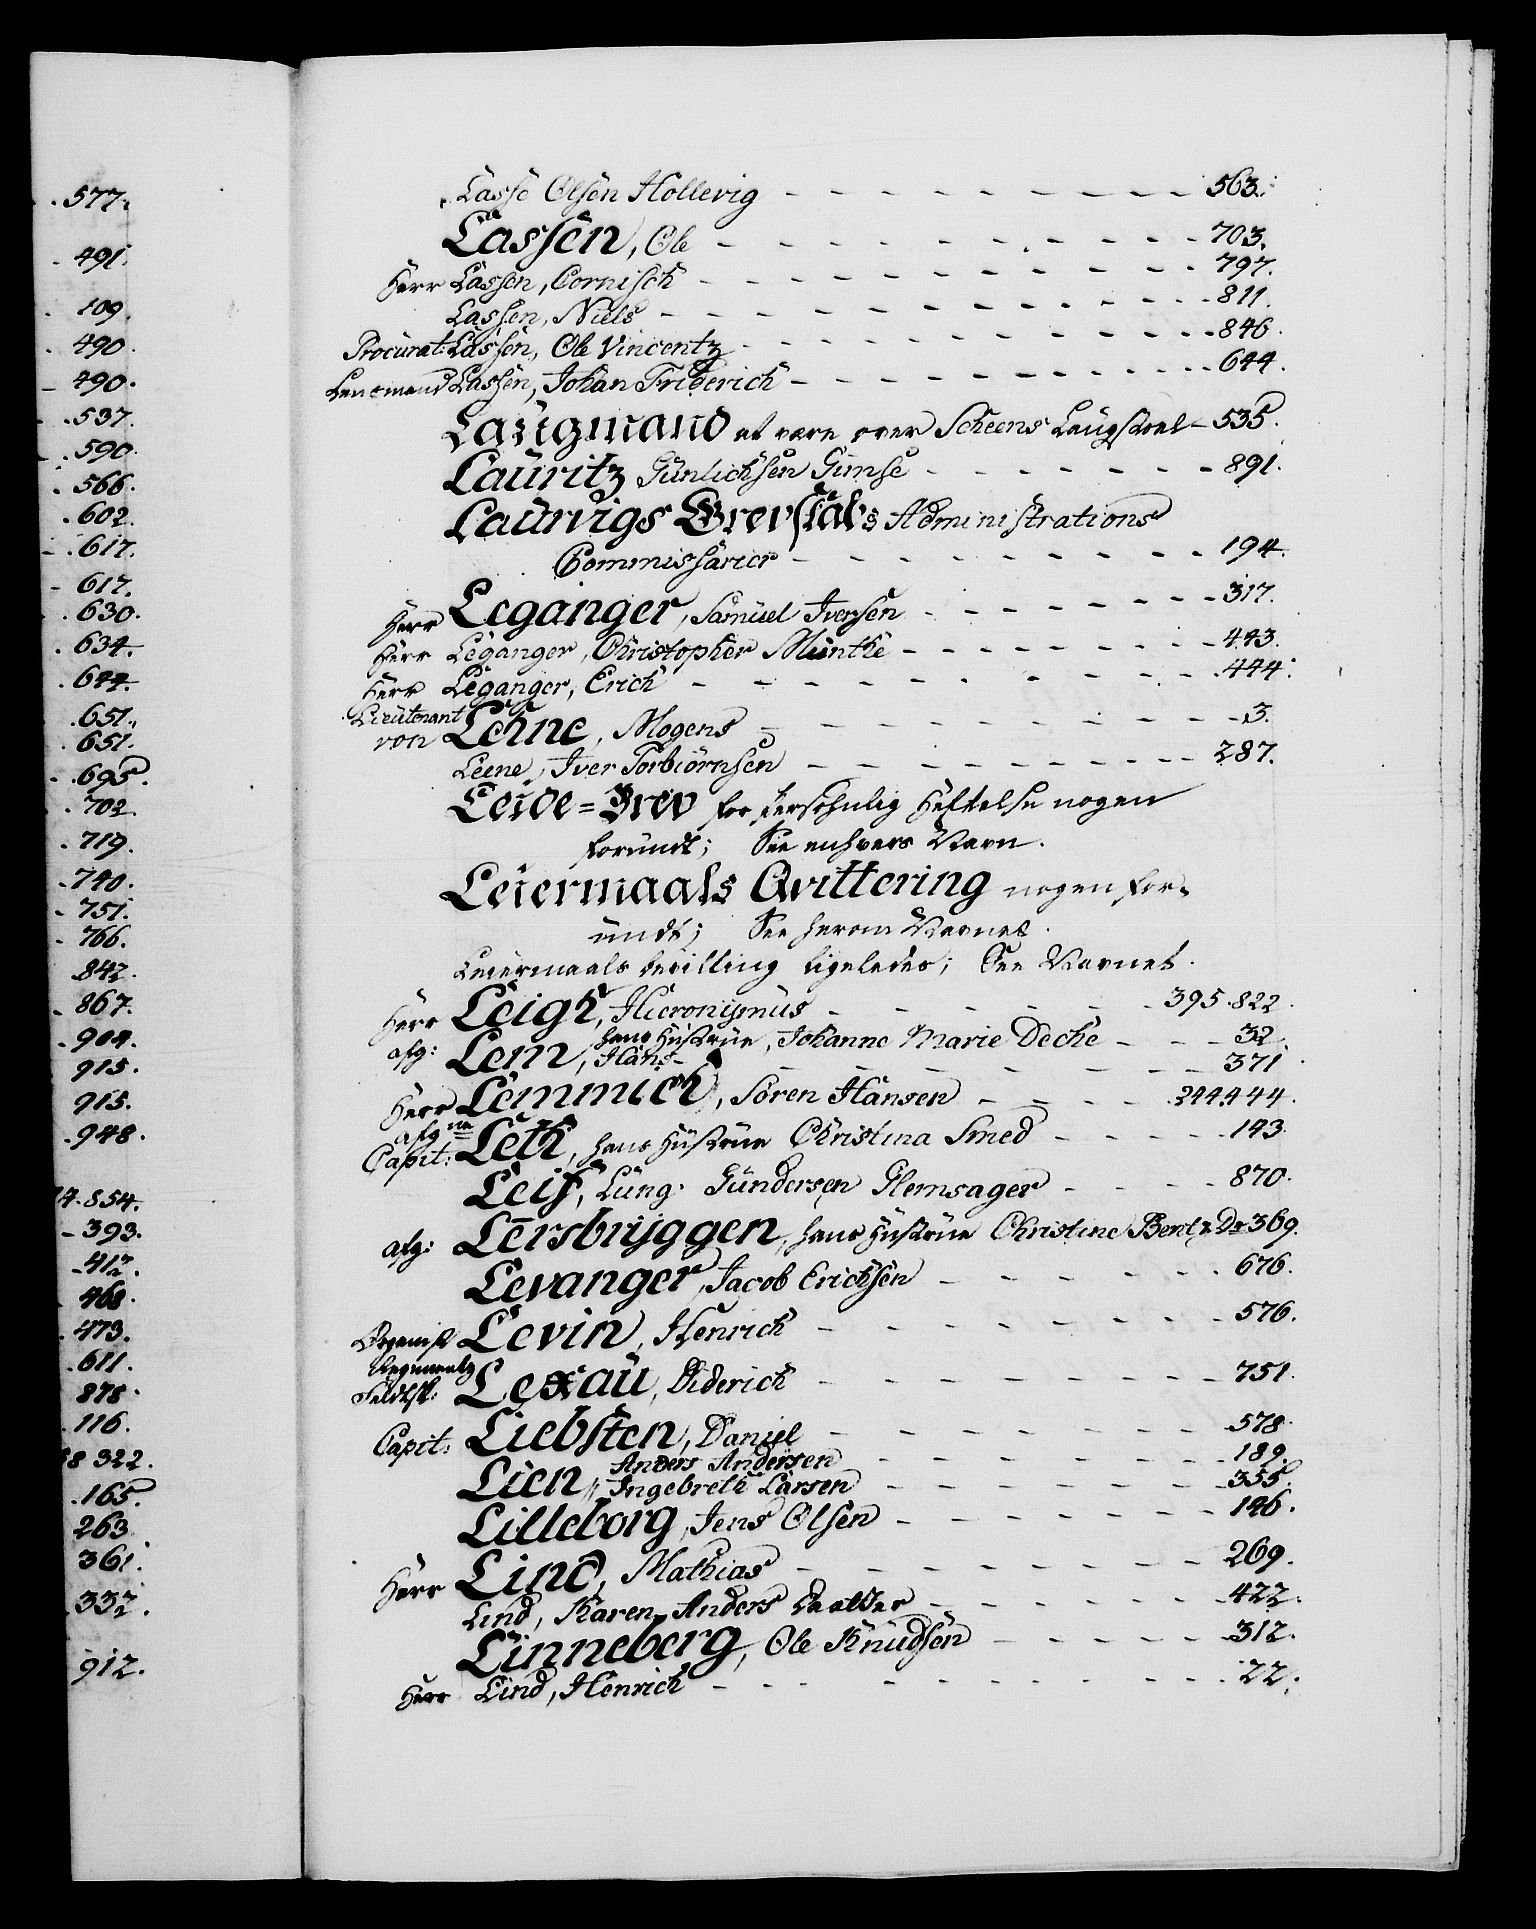 577.
491.
109.
490.
490.
537.
590.
566.
602.
617.
617.
630.
634.
644.
651.
651.
695.
702.
719.
740.
751.
766.
842.
867.
904.
915.
915.
948.
854.
393.
412.
468.
473.
611.
878.
116.
322.
165.
263
361.
332.
912.
Lasse Olsen Hollevig - - - - - - - - - - 563.
Lassen, Ole - - - - - - - - - - - 703.
Herr Lassen, Cornisch - - - - - - - - - - 797.
Lassen, Niels - - - - - - - - - - - 811.
Procurat: Lassen, Ole Vincentz - - - - - - - - - - 846.
Lensmand Lassen, Johan Friderich - - - - - - - - - 644.
Laugmand at være over Scheens Laugstoel - 535.
Lauritz Gunlichsen Gimse - - - - - - - - 891.
Laurvigs Grevskabs Administrations
Commissarier - - - - - - - - - - 194.
Herr Leganger, Samuel Iversen - - - - - - - - 317.
Herr Leganger, Christopher Munthe - - - - - - - - 443.
Herr Leganger, Erich - - - - - - - - - - 444.
Lieutenant
von Lehne, Mogens - - - - - - - - - - 3.
Leene, Iver Torbiörnsen - - - - - - - - - 287.
Leide=Brev for persohnlig Heftelse nogen
forundt; See enhvers Navn.
Leiermaals Qvittering nogen for-
undt; See herom Navnet.
Leiermaals bevilling ligeledes; See Navnet.
Herr Leigh, Hieronijmus - - - - - - 395. 822.
afg: Lem, hans Hustrue, Johanne Marie Deche - - - 32.
Hans - - - - - - - - - 371
Herr Lemmich, Sören Hansen - - - - 244. 444.
afgne
Capit: Leth, hans Hustrue Christina Smed - - - - - 143.
Leif, Lüng. Gundersen Glemsager - - - - 870.
afg: Lersbrÿggen, hans Hustrue Christine Bentz Dr 369.
Levanger, Jacob Erichsen - - - - - - - 676.
Organist Levin, Henrich - - - - - - - - - 576.
Regiments
Feldtsk: Lexau, Diderich - - - - - - - - - 751.
Capit: Liebsten, Daniel - - - - - - - - - 578.
Lien, Anders Andersen - - - - - - - - 189.
" Ingebreth Larsen - - - - - - - - 355.
Lilleborg, Jens Olsen - - - - - - - - 146.
Herr Lind, Mathias - - - - - - - - - 269.
Lind, Karen Anders Daatter - - - - - - - 422.
Linneberg, Ole Knudsen - - - - - - 312.
Herr Lind, Henrich - - - - - - - - - - 22.